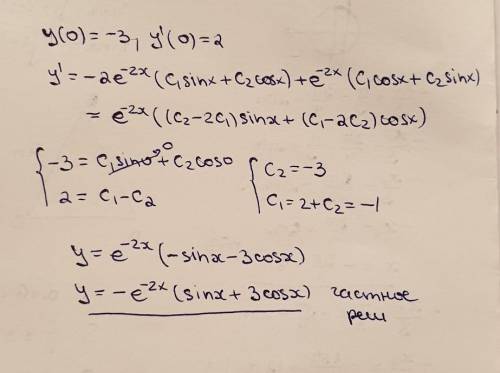 y(0)=-3, y'(0)=2
y'=-2e^-2x (C₁sinx+C₂cosx)+e^-2x (C₁cosx+C₂sinx)
=e^-2x ((C₂-2C₁)sinx+(C₁-2C₂)cosx)
{-3=C₁sin0→0+C₂cos0 {C₂=-3
2=C₁-C₂ C₁=2+C₂=-1
y=e^-2x (-sinx-3cosx)
y=-e^-2x (sinx+3cosx) частное
реш